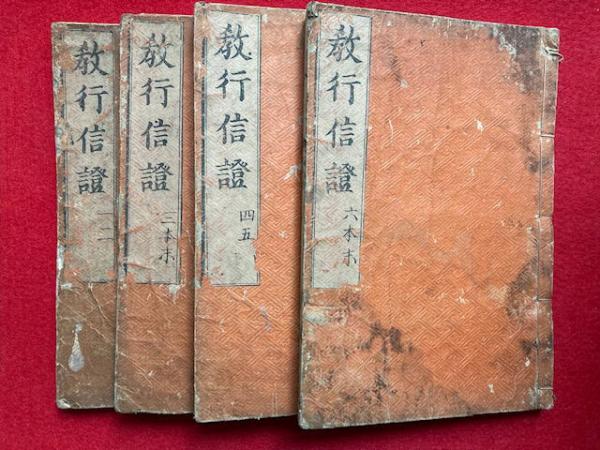 教行信證
六本末
教行信證
四五
教行信證
三本末
教行信證
一二